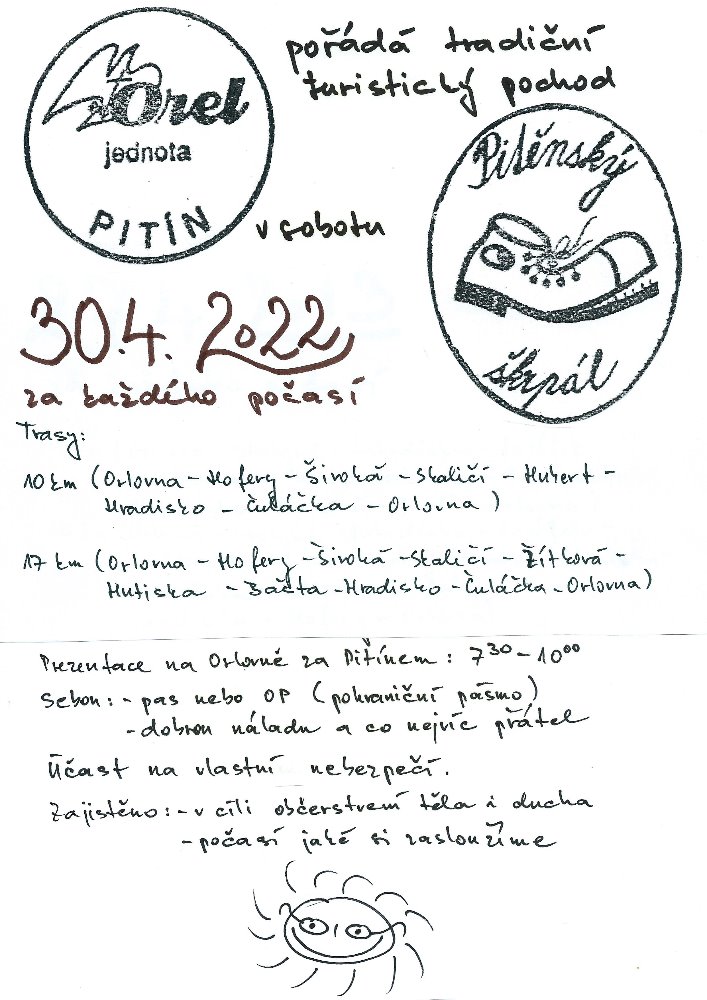 Orel
jednota
PITÍN
pořádá tradiční
turistický pochod
Pitěnský
škrpál
v sobotu
30.4. 2022
za každého počasí
Trasy:
10 km (Orlovna - Hofery - Široká - Skaličí - Hubert -
Hradisko - Čuláčka - Orlovna)
17 km (Orlovna - Hofery - Široká - Skaličí - Žítková -
Hutiska - Bašta - Hradisko - Čuláčka - Orlovna)
Prezentace na Orlovně za Pitínem: 7³⁰ - 10⁰⁰
Sebou: - pas nebo OP (pohraniční pásmo)
- dobrou náladu a co nejvíc přátel
Účast na vlastní nebezpečí.
Zajištěno: - v cíli občerstvení těla i ducha
- počasí jaké si zasloužíme